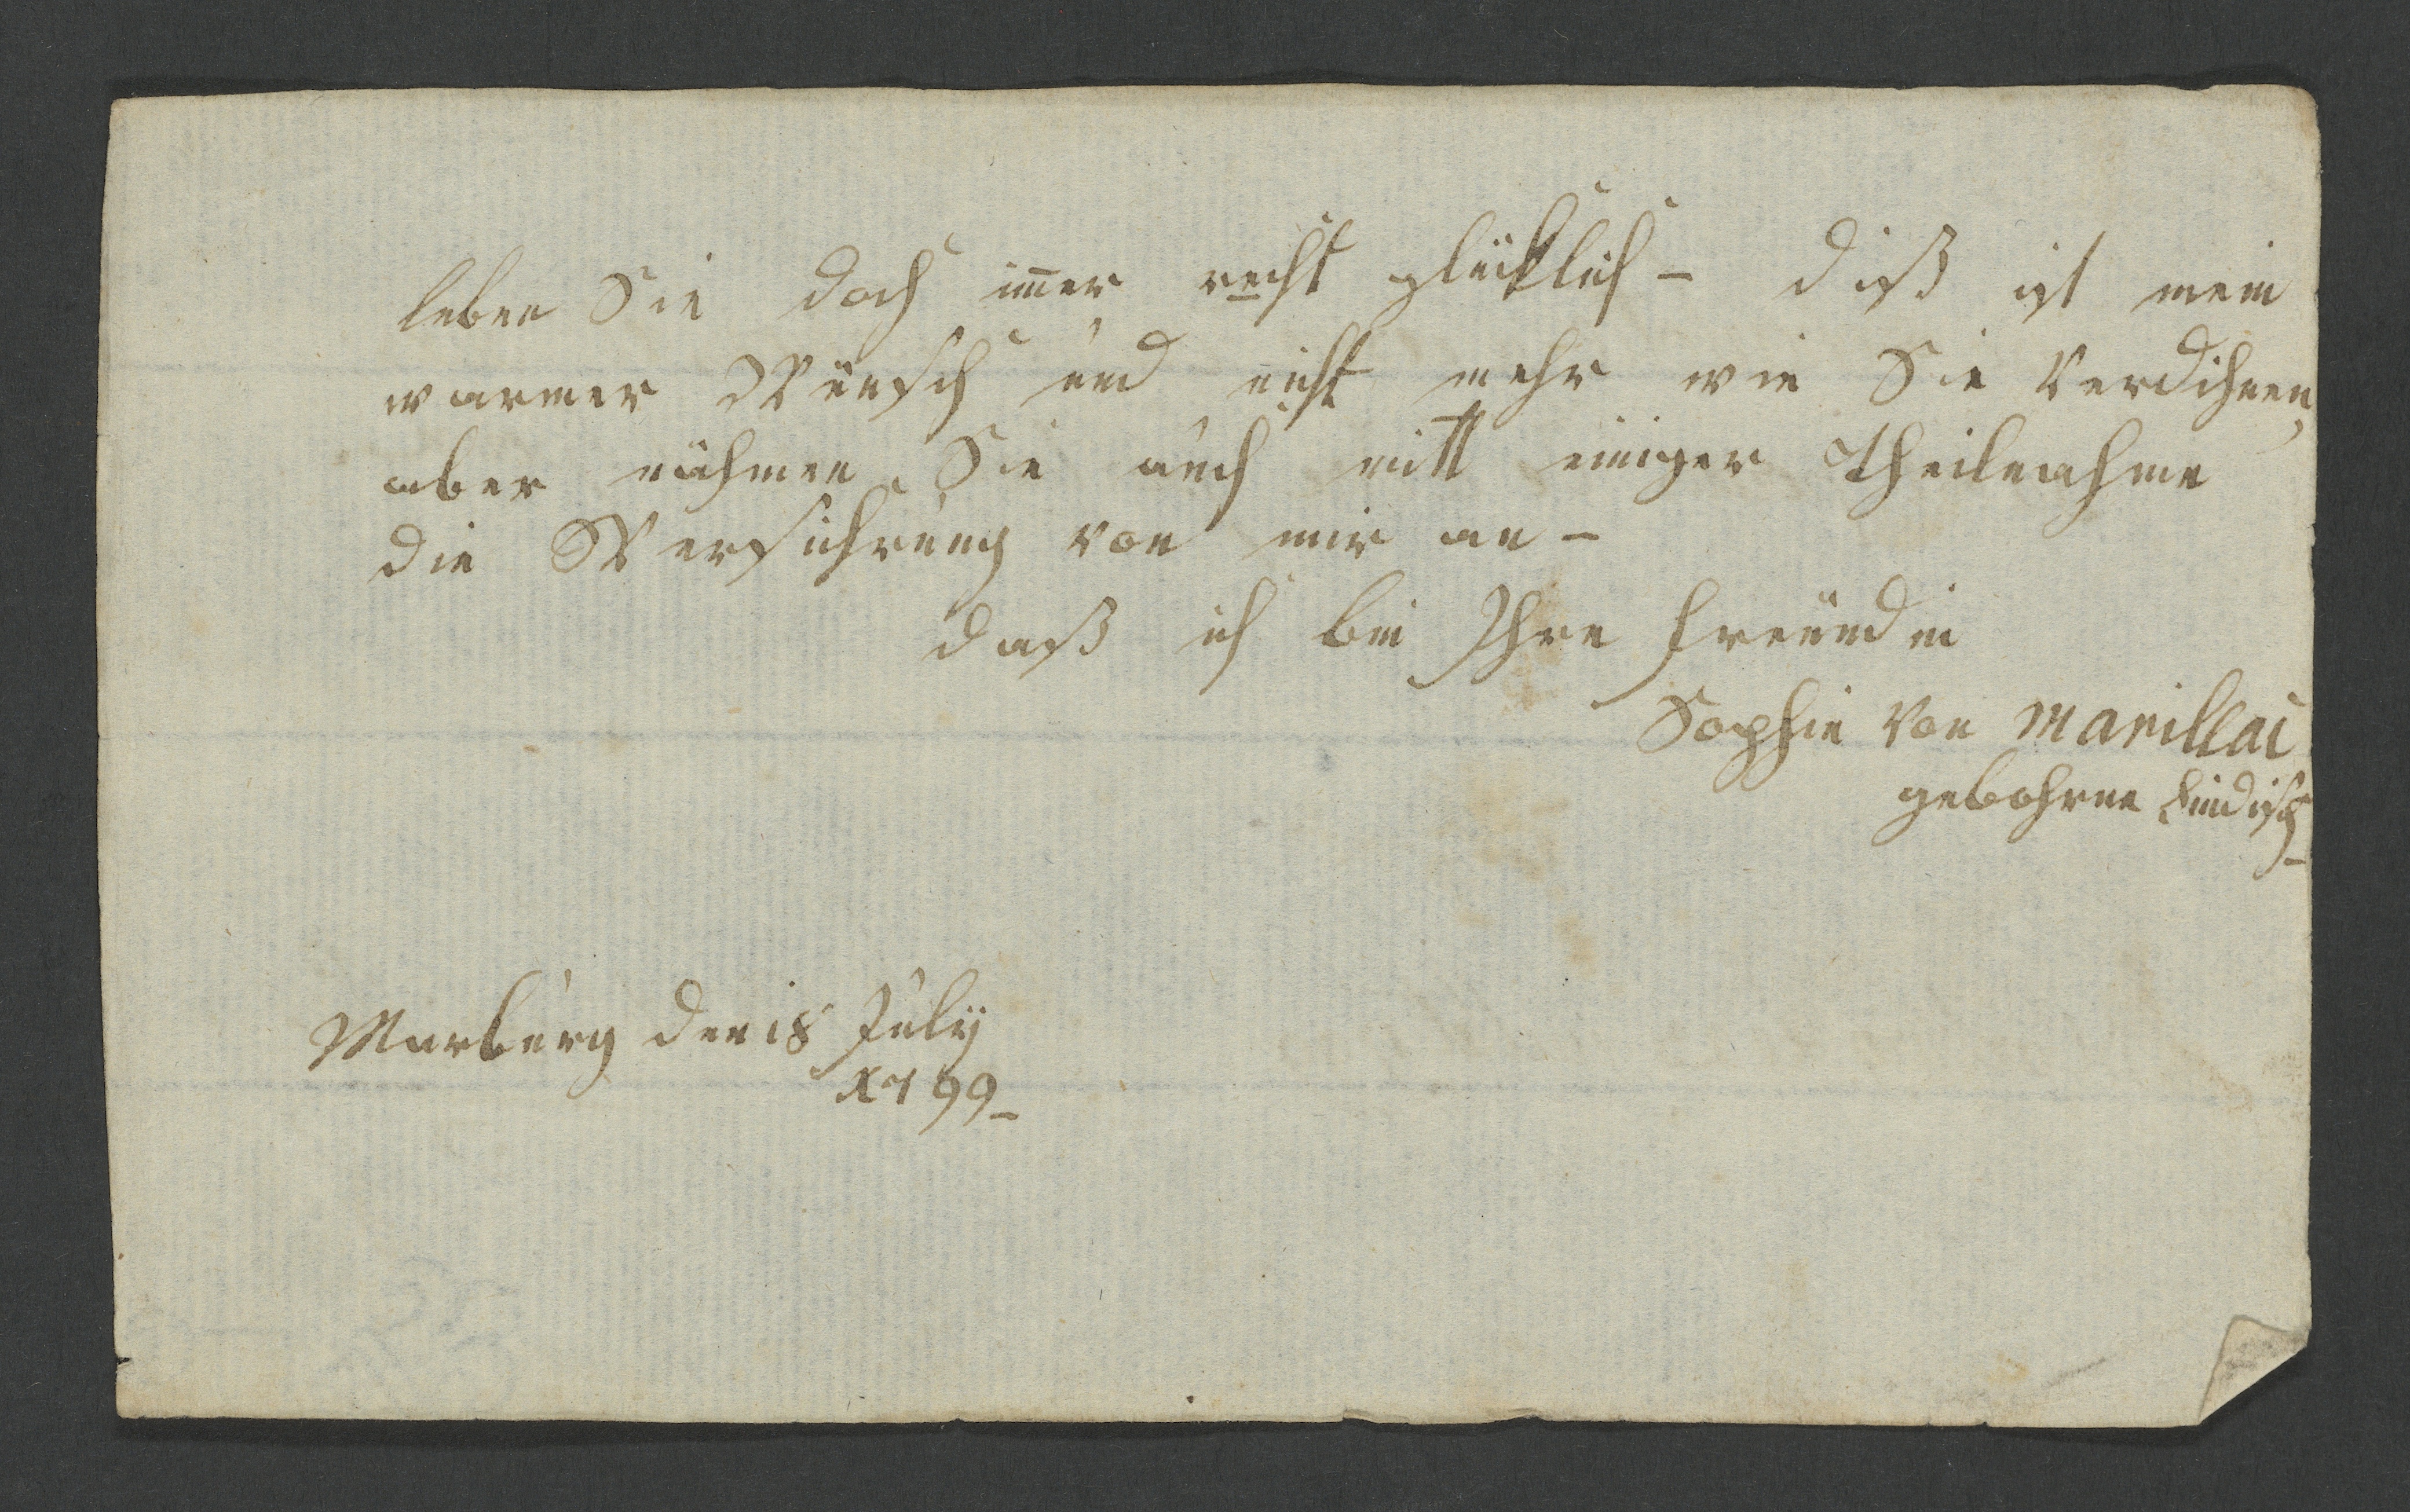 leben Sie doch im̄er recht glücklich – diß ist mein
warmer Wunsch und nicht mehr wie Sie Verdihnen,
aber nähmen Sie auch mitt einiger Theilnahme
die Versichrung von mir an –
daß ich bin Ihre freundin
Sophie von Marillac
gebohrne
Marburg den 18 July
1799 –